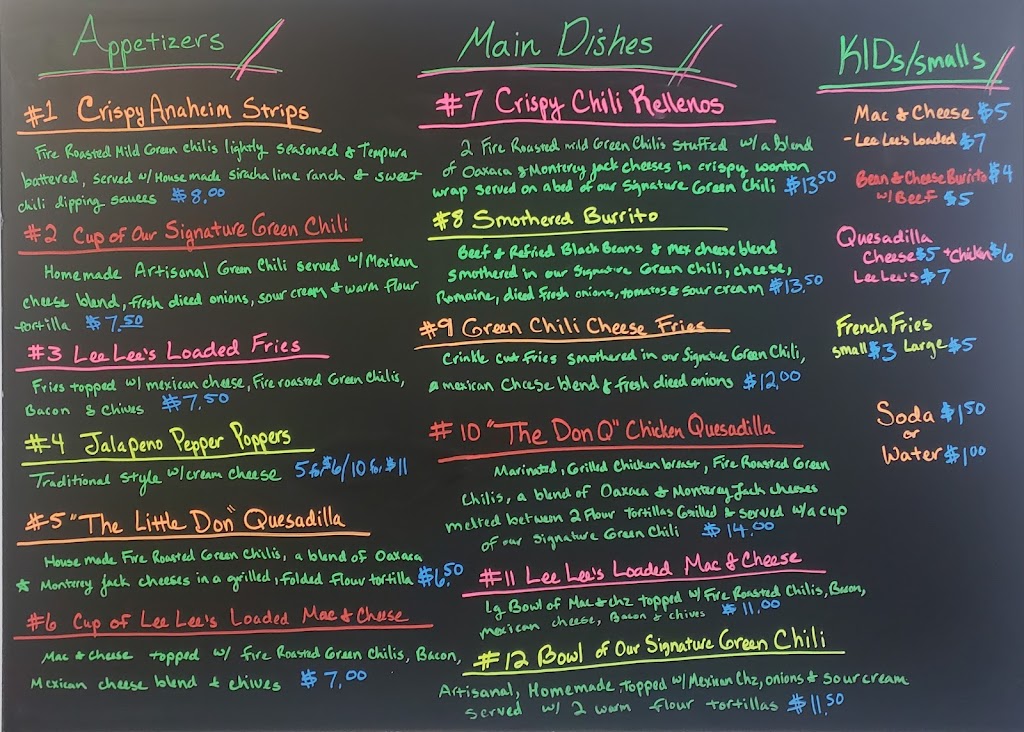 Appetizers
#1 Crispy Anaheim Strips
Fire Roasted Mild Green chilis lightly seasoned & Tempura
battered, served w/ House made siracha lime ranch & sweet
chili dipping sauces $8.00
#2 Cup of Our Signature Green Chili
Homemade Artisanal Green Chili served w/ Mexican
cheese blend, fresh diced onions, sour cream & warm flour
tortilla $7.50
#3 Lee Lee's Loaded Fries
Fries topped w/ mexican cheese, Fire roasted Green Chilis,
Bacon & Chives $7.50
#4 Jalapeno Pepper Poppers
Traditional style w/ cream cheese 5 for $6/10 for $11
#5 "The Little Don" Quesadilla
House made Fire Roasted Green Chilis, a blend of Oaxaca
& Monterey jack cheeses in a grilled, folded flour tortilla $6.50
#6 Cup of Lee Lee's Loaded Mac & Cheese
Mac & cheese topped w/ Fire Roasted Green Chilis, Bacon,
Mexican cheese blend & chives $7.00
Main Dishes
#7 Crispy Chili Rellenos
2 Fire Roasted mild Green Chilis stuffed w/ a blend
of Oaxaca & Monterey jack cheeses in crispy wonton
wrap served on a bed of our Signature Green Chili $13.50
#8 Smothered Burrito
Beef & Refried Black Beans & Mex cheese blend
smothered in our Signature Green Chili, cheese,
Romaine, diced fresh onions, tomatos & sour cream $13.50
#9 Green Chili Cheese Fries
Crinkle cut fries smothered in our Signature Green Chili,
mexican cheese blend & fresh diced onions $12.00
#10 "The Don Q" Chicken Quesadilla
Marinated, Grilled Chicken breast, Fire Roasted Green
Chilis, a blend of Oaxaca & Monterey Jack cheeses
melted between 2 flour tortillas Grilled & served w/ a cup
of our Signature Green Chili $14.00
#11 Lee Lee's Loaded Mac & Cheese
Lg Bowl of Mac & chz topped w/ Fire Roasted Chilis, Bacon,
mexican cheese, Bacon & chives $11.00
#12 Bowl of Our Signature Green Chili
Artisanal, Homemade topped w/ Mexican Chz, onions & sour cream
served w/ 2 warm flour tortillas $11.50
KIDs/smalls
Mac & Cheese $5
- Lee Lee's Loaded $7
Bean & Cheese Burrito $4
w/ Beef $5
Quesadilla
Cheese $5 + Chicken $6
Lee Lee's $7
French Fries
small $3 Large $5
Soda $1.50
or
Water $1.00